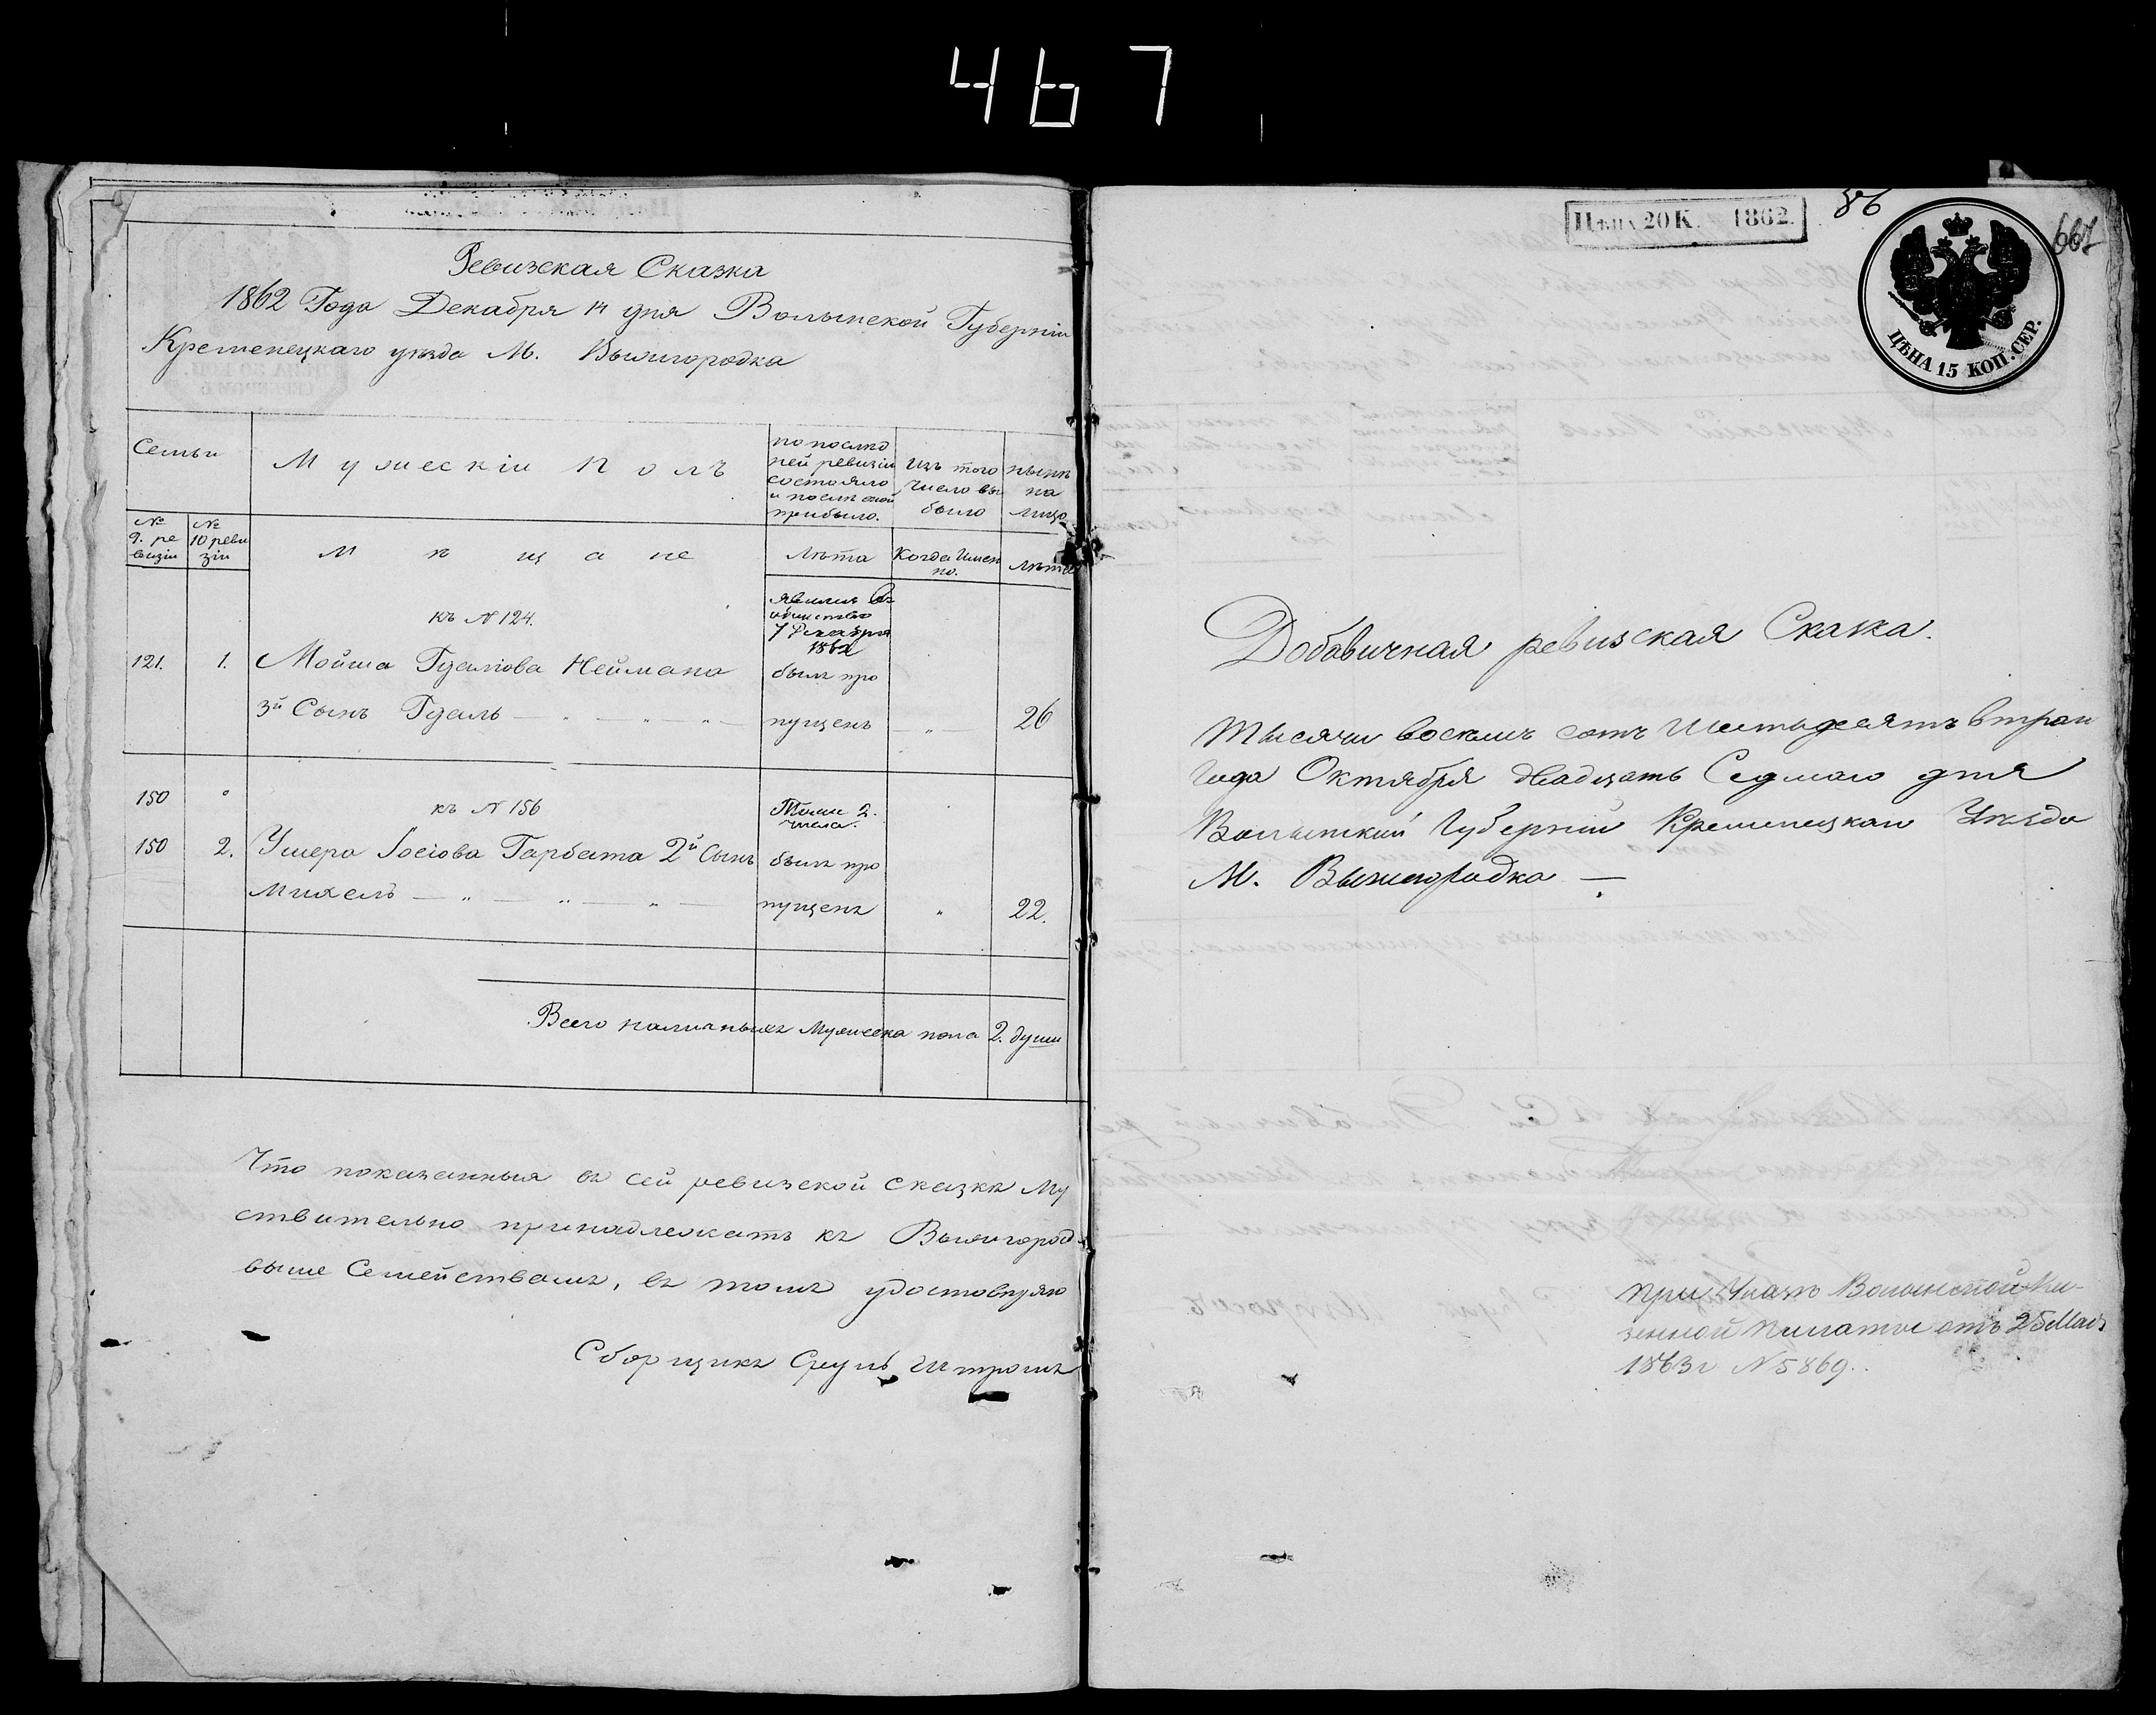 467
Ревизская Сказка
1862 Года Декабря 14 дня Волынской Губерніи
Кременецкаго уезда М. Вышгородка
Семьи
Мужескій Полъ
по послѣд
ней ревизіи
состояло
и послѣ оной
прибыло.
Изъ того
числа вы
было
нынѣ
на
лицо
№
9. ре
визіи
№
10 реви
зіи
Мѣщане
Лѣта
Когда Имен
но.
Лѣта
къ № 124.
7 Декабря
1862
121. 1. Мошка Гдалiова Неймана
былъ про
3й Сынъ Гдаль — " — " — " —
пущенъ — " — 26
150
къ № 156
числа.
150 2. Ушера Іосіова Гарбата 2й Сынъ
былъ про
Михель — " — " — " —
пущенъ " 22.
Всего наличныхъ Мужеска пола 2. души
Что показанныя въ сей ревизской сказкѣ Му
ствительно принадлежатъ къ Вышгород
выше Семействамъ, въ томъ удостовѣряю
Сборщикъ Сруль
Цѣна 20 К. 1862.
86
667
ЦѢНА 15 КОП. СЕР.
Добавичная ревизская Сказка.
Тысячи восемъ сотъ Шестьдесятъ втраи
Года Октября двадцать Седмаго дня
Волынский Губерніи Кременецкаго Уѣзда
М. Вышгородка —
При Указѣ Волынской Ка-
зенной Палаты отъ 25 Мая
1863 г № 5869.